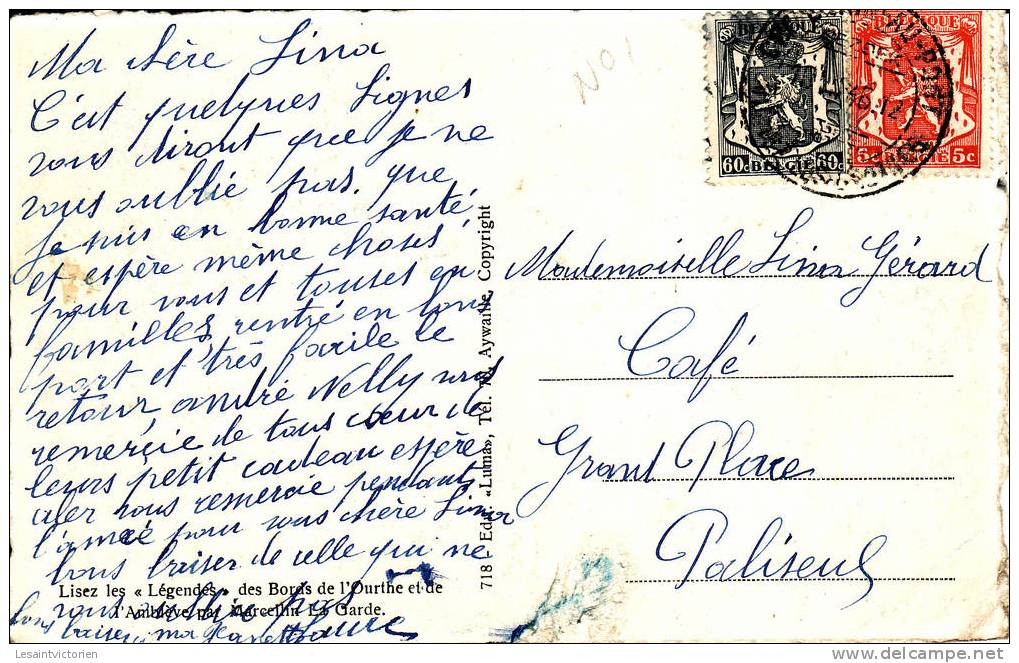 Ma chère Lina
C'est quelques Lignes
vous diront que je ne
vous oublie pas. que
je suis en bonne santé,
et espère même choses
pour vous et toutes en
familles, rentré en bonne
part et très facile le
retour, andré Nelly vous
remerçie de tous cœur de
leurs petit cadeau espère
aler vous remercie pendant
l'année pour vous chère Lina
bons baiser de celle qui ne
vous oublie pas
bons baiser, ma
Lisez les « Légendes » des Bords de l'Ourthe et de
l'Amblève par Marcellin La Garde.
718 Edit. «Luma», Tél. Aywaille, Copyright
NO1
BELGIQUE
60c BELGIE 60c
BELGIQUE
5c BELGIE 5c
Mademoiselle Lina Gérard
Café
Grand Place
Paliseul
Lesaintvictorien
www.delcampe.net